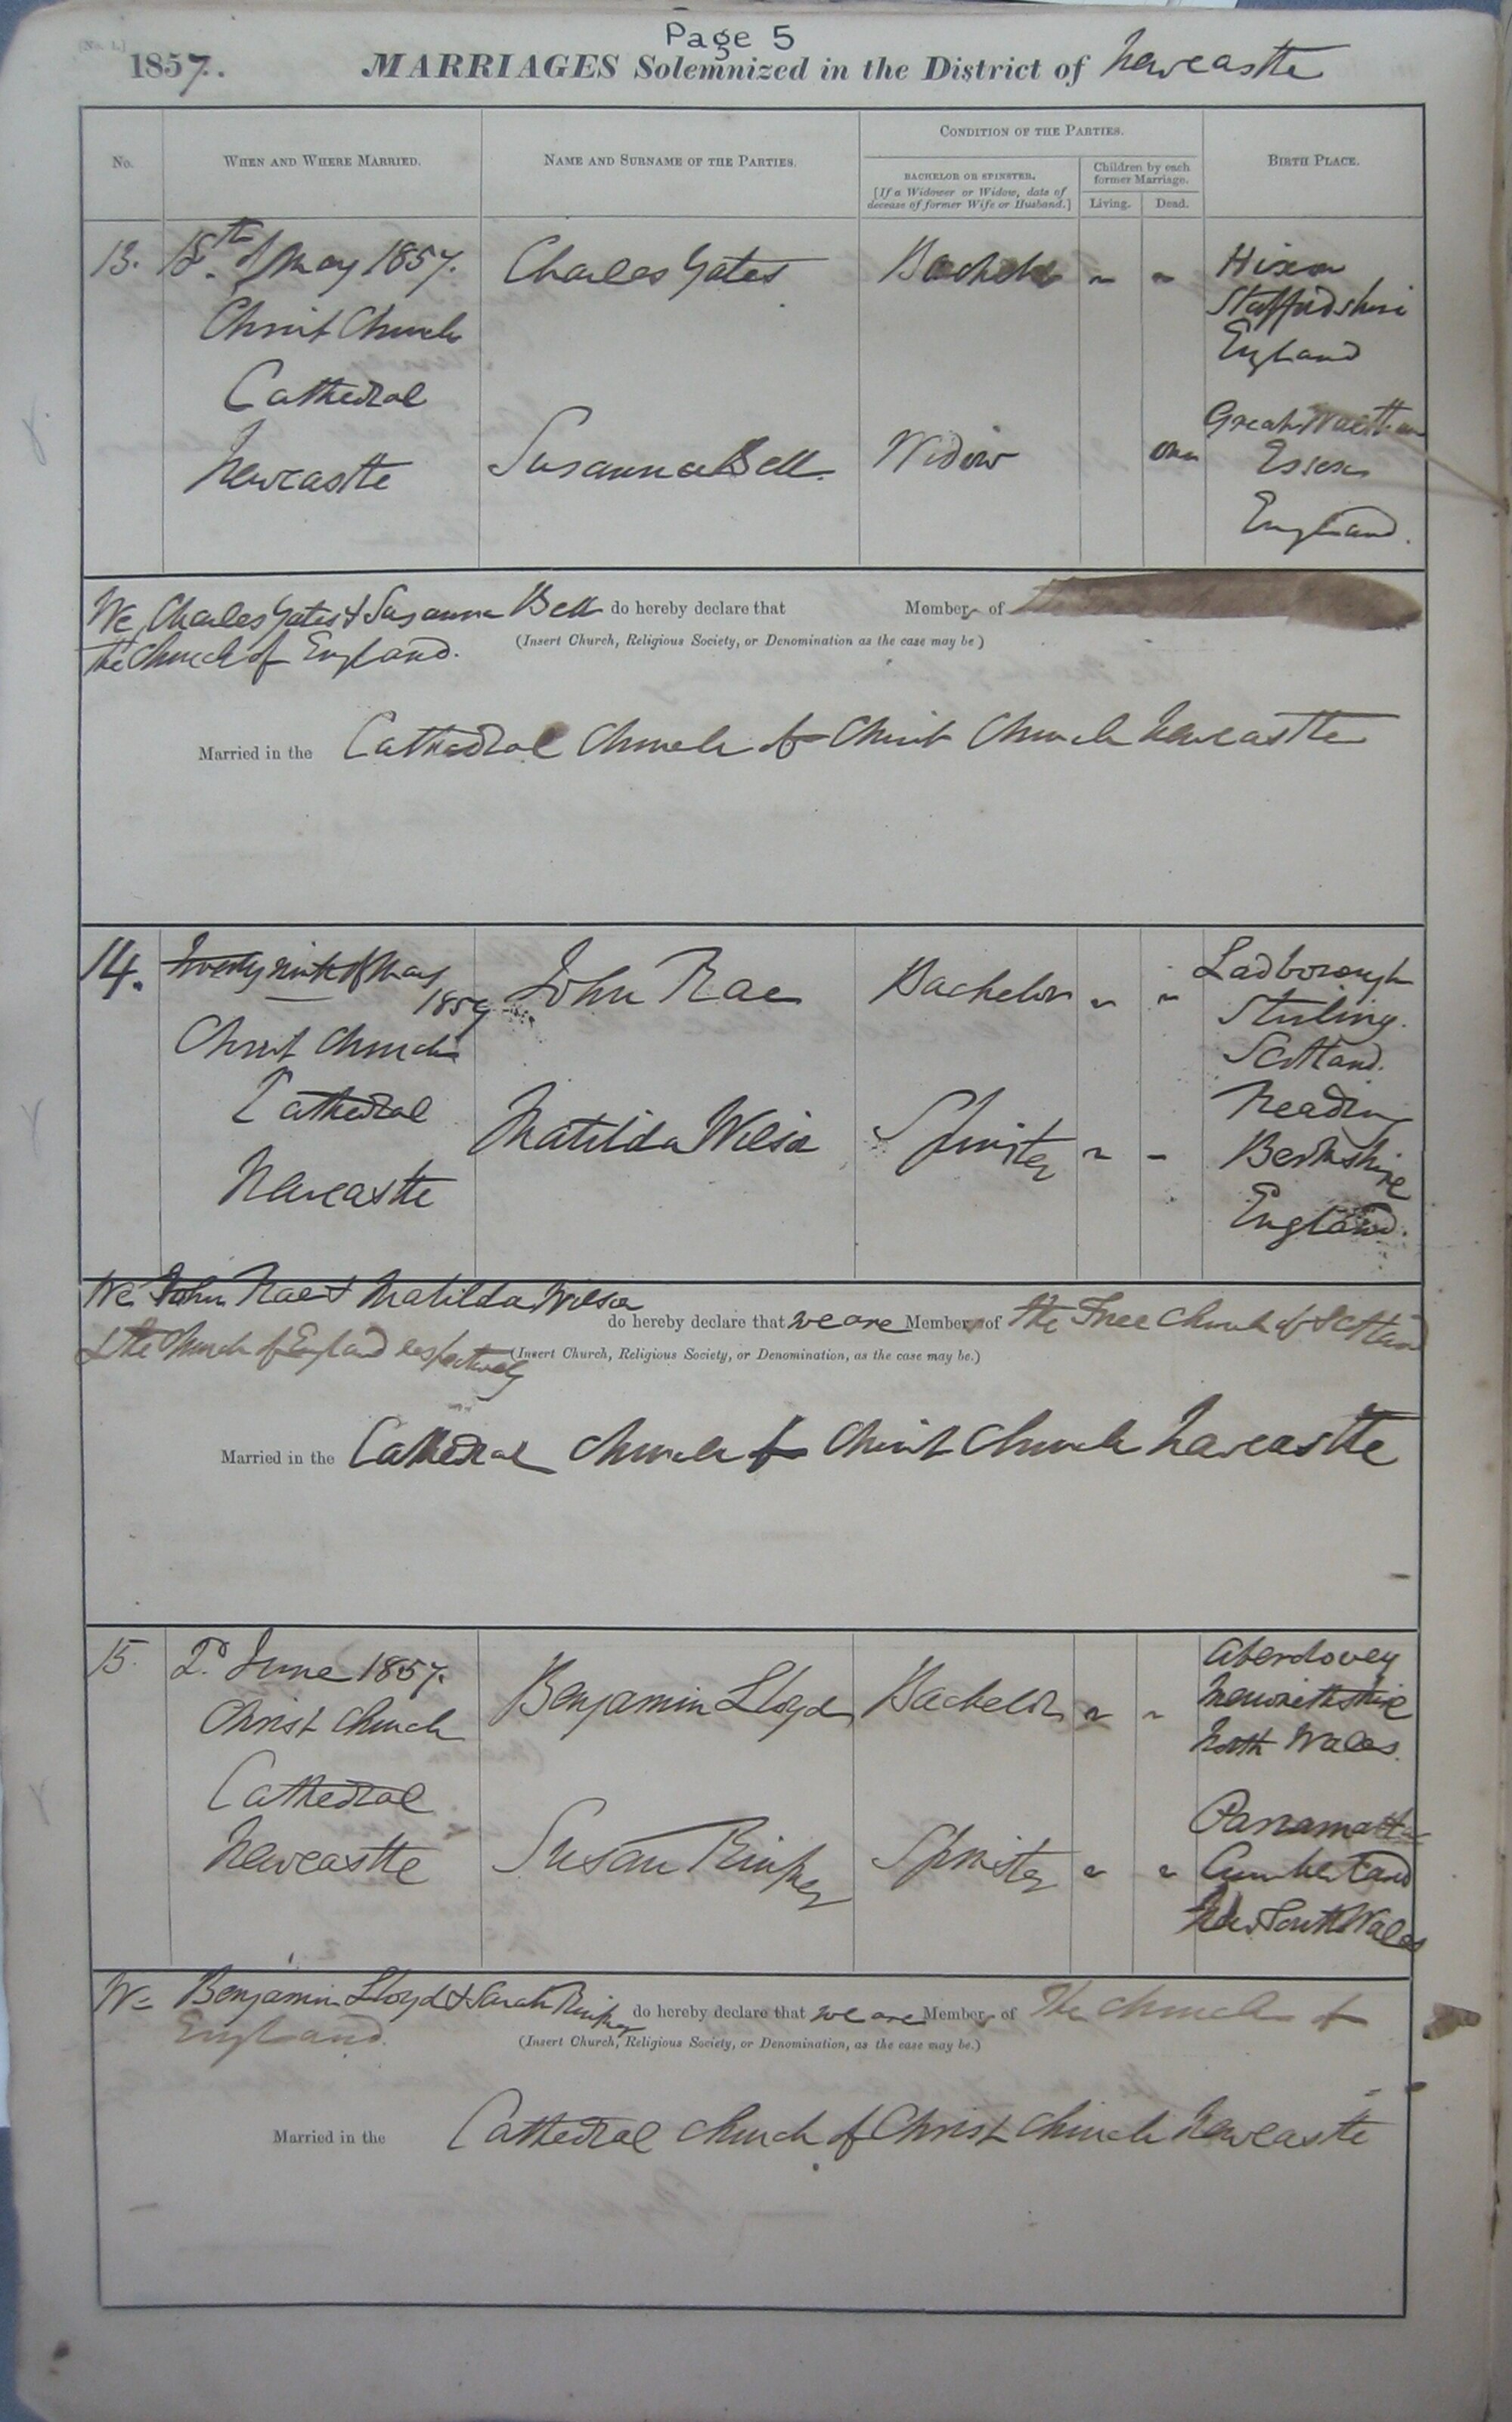 Page 5
[No. 1.]
1857. MARRIAGES Solemnized in the District of Newcastle
No.
WHEN AND WHERE MARRIED.
NAME AND SURNAME OF THE PARTIES.
CONDITION OF THE PARTIES.
BACHELOR OR SPINSTER.
[If a Widower or Widow, date of
decease of former Wife or Husband.]
Children by each
former Marriage.
Living.
Dead.
BIRTH PLACE.
13.
18th of May 1857.
Christ Church
Cathedral
Newcastle
Charles Gates
Bachelor
Hixon
Staffordshire
England
Susanna Bell.
Widow
one
Great Waltham
Essex
England.
We, Charles Gates & Susanna Bell do hereby declare that Members of
the Church of England.
(Insert Church, Religious Society, or Denomination as the case may be)
Married in the Cathedral Church of Christ Church Newcastle
14.
Twenty ninth of May
1857
Christ Church
Cathedral
Newcastle
John Rae
Bachelor
Ladborough
Stirling.
Scotland.
Matilda Wilson
Spinster
Reading
Berkshire
England.
We John Rae & Matilda Wilson
do hereby declare that we are Members of the Free Church of Scotland
& the Church of England respectively
(Insert Church, Religious Society, or Denomination, as the case may be.)
Married in the Cathedral Church of Christ Church Newcastle
15.
2d. June 1857.
Christ Church
Cathedral
Newcastle
Benjamin Lloyd
Bachelor
Aberdovey
North Wales.
Susan
Spinster
Parramatta
Cumberland
New South Wales
We Benjamin Lloyd & Sarah do hereby declare that we are Members of The Church of
England.
(Insert Church, Religious Society, or Denomination, as the case may be.)
Married in the Cathedral Church of Christ Church Newcastle